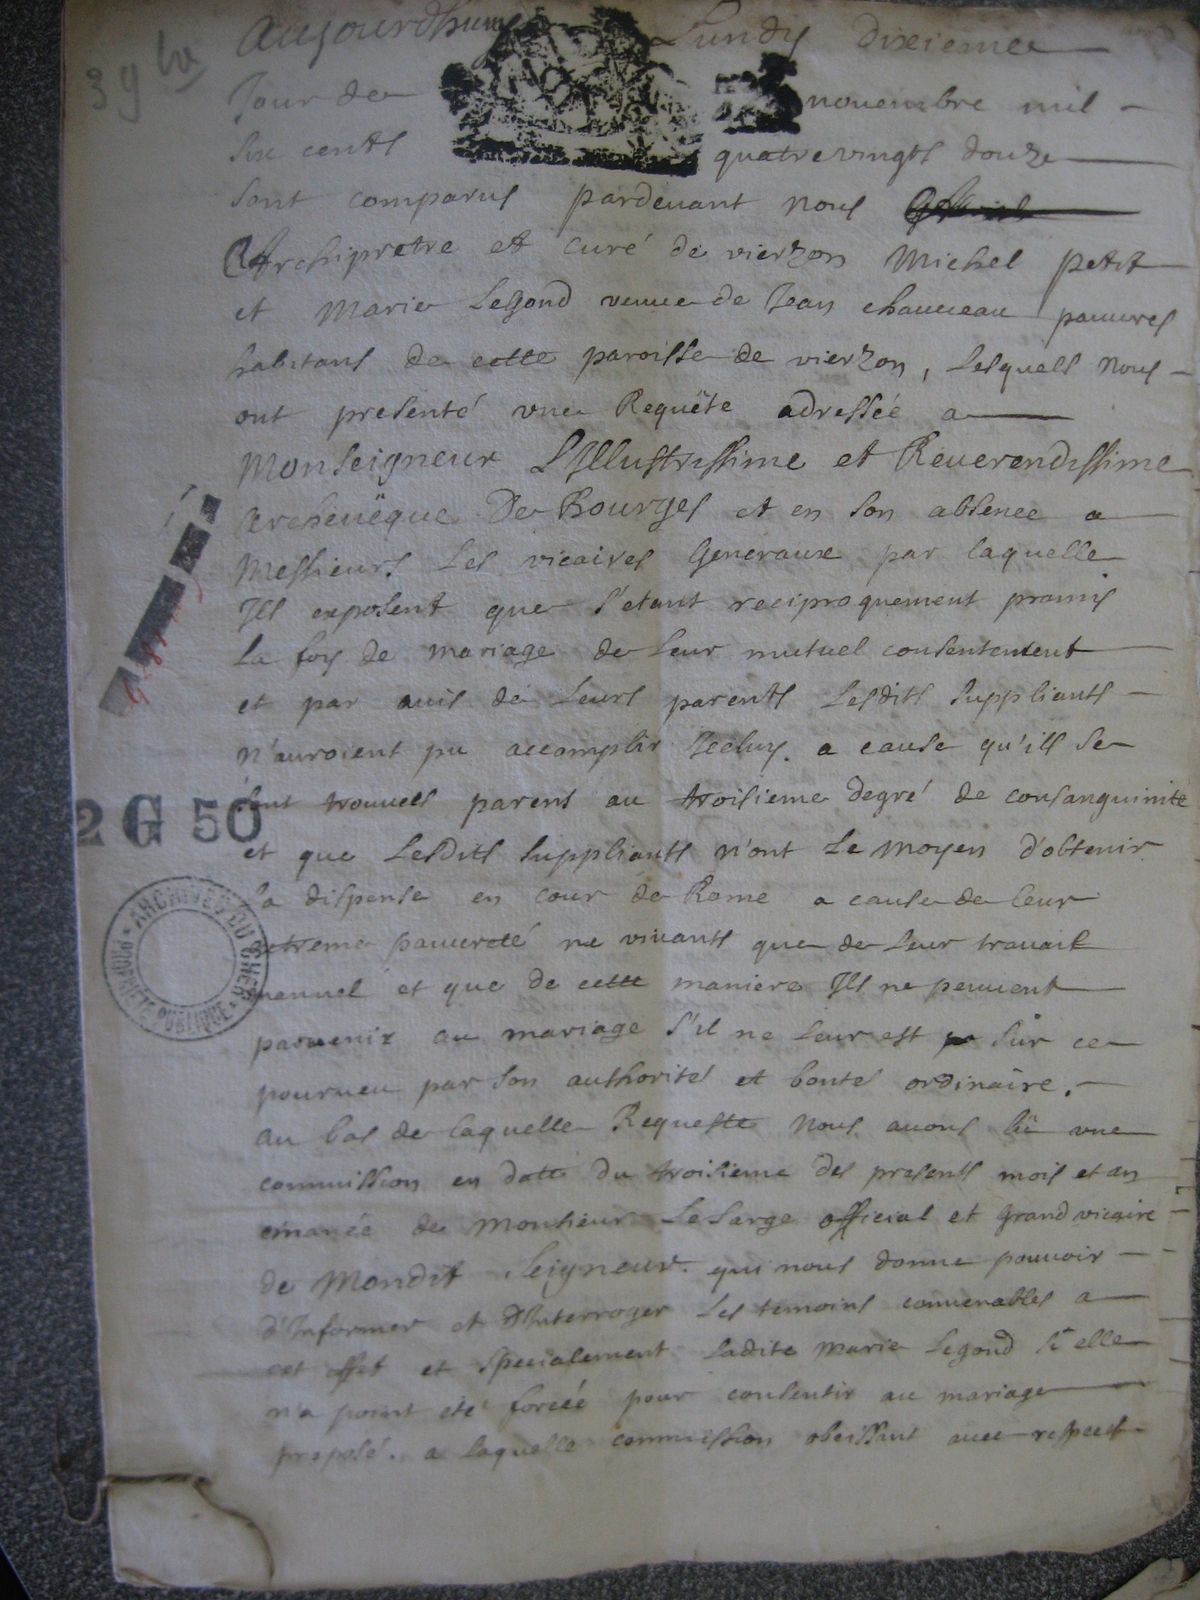 3 9bre
Aujourdhuy Lundy dixieme
Jour de novembre mil
Six cents quatrevingts douze
sont comparus pardevant nous
Archipretre et curé de vierzon Michel petit
et Marie Legond veuve de Jean chauveau pauvres
habitans de cette paroisse de vierzon, Lesquels nous
ont presenté vne Requête adressée a
Monseigneur L'Illustrissime et Reuerendissime
archeuêque De Bourges et en son absence a
Messieurs Les vicaires Generaux par laquelle
Ils exposent que s'etant reciproquement promis
La foy de mariage de Leur mutuel consentement
et par auis de Leurs parents Lesdits suppliants
n'auroient pu accomplir Jceluy. a cause qu'ils se
sont trouvees parens au troisieme degré de consanguinité
et que Lesdits suppliants n'ont Le moyen d'obtenir
la dispense en cour de Rome a cause de leur
extreme pauureté ne viuants que de Leur trauail
manuel et que de cette maniere Ils ne peuuent
paruenir au mariage s'il ne Leur est sur ce
pourueu par son authorité et bonté ordinaire.
au bas de laquelle Requeste Nous auons lû vne
commission en datte du troisieme des presents mois et an
emanée de Monsieur LeLarge official et Grand vicaire
de Mondit Seigneur. qui nous donne pouuoir
d'Informer et d'Interroger Les temoins conuenables a
cet effet et specialement Ladite Marie Legond si elle
n'a point eté forcée pour consentir au mariage
proposé. a laquelle commission obeissant auec respect
2 G 50
ARCHIVES DU CHER
PROPRIÉTÉ PUBLIQUE